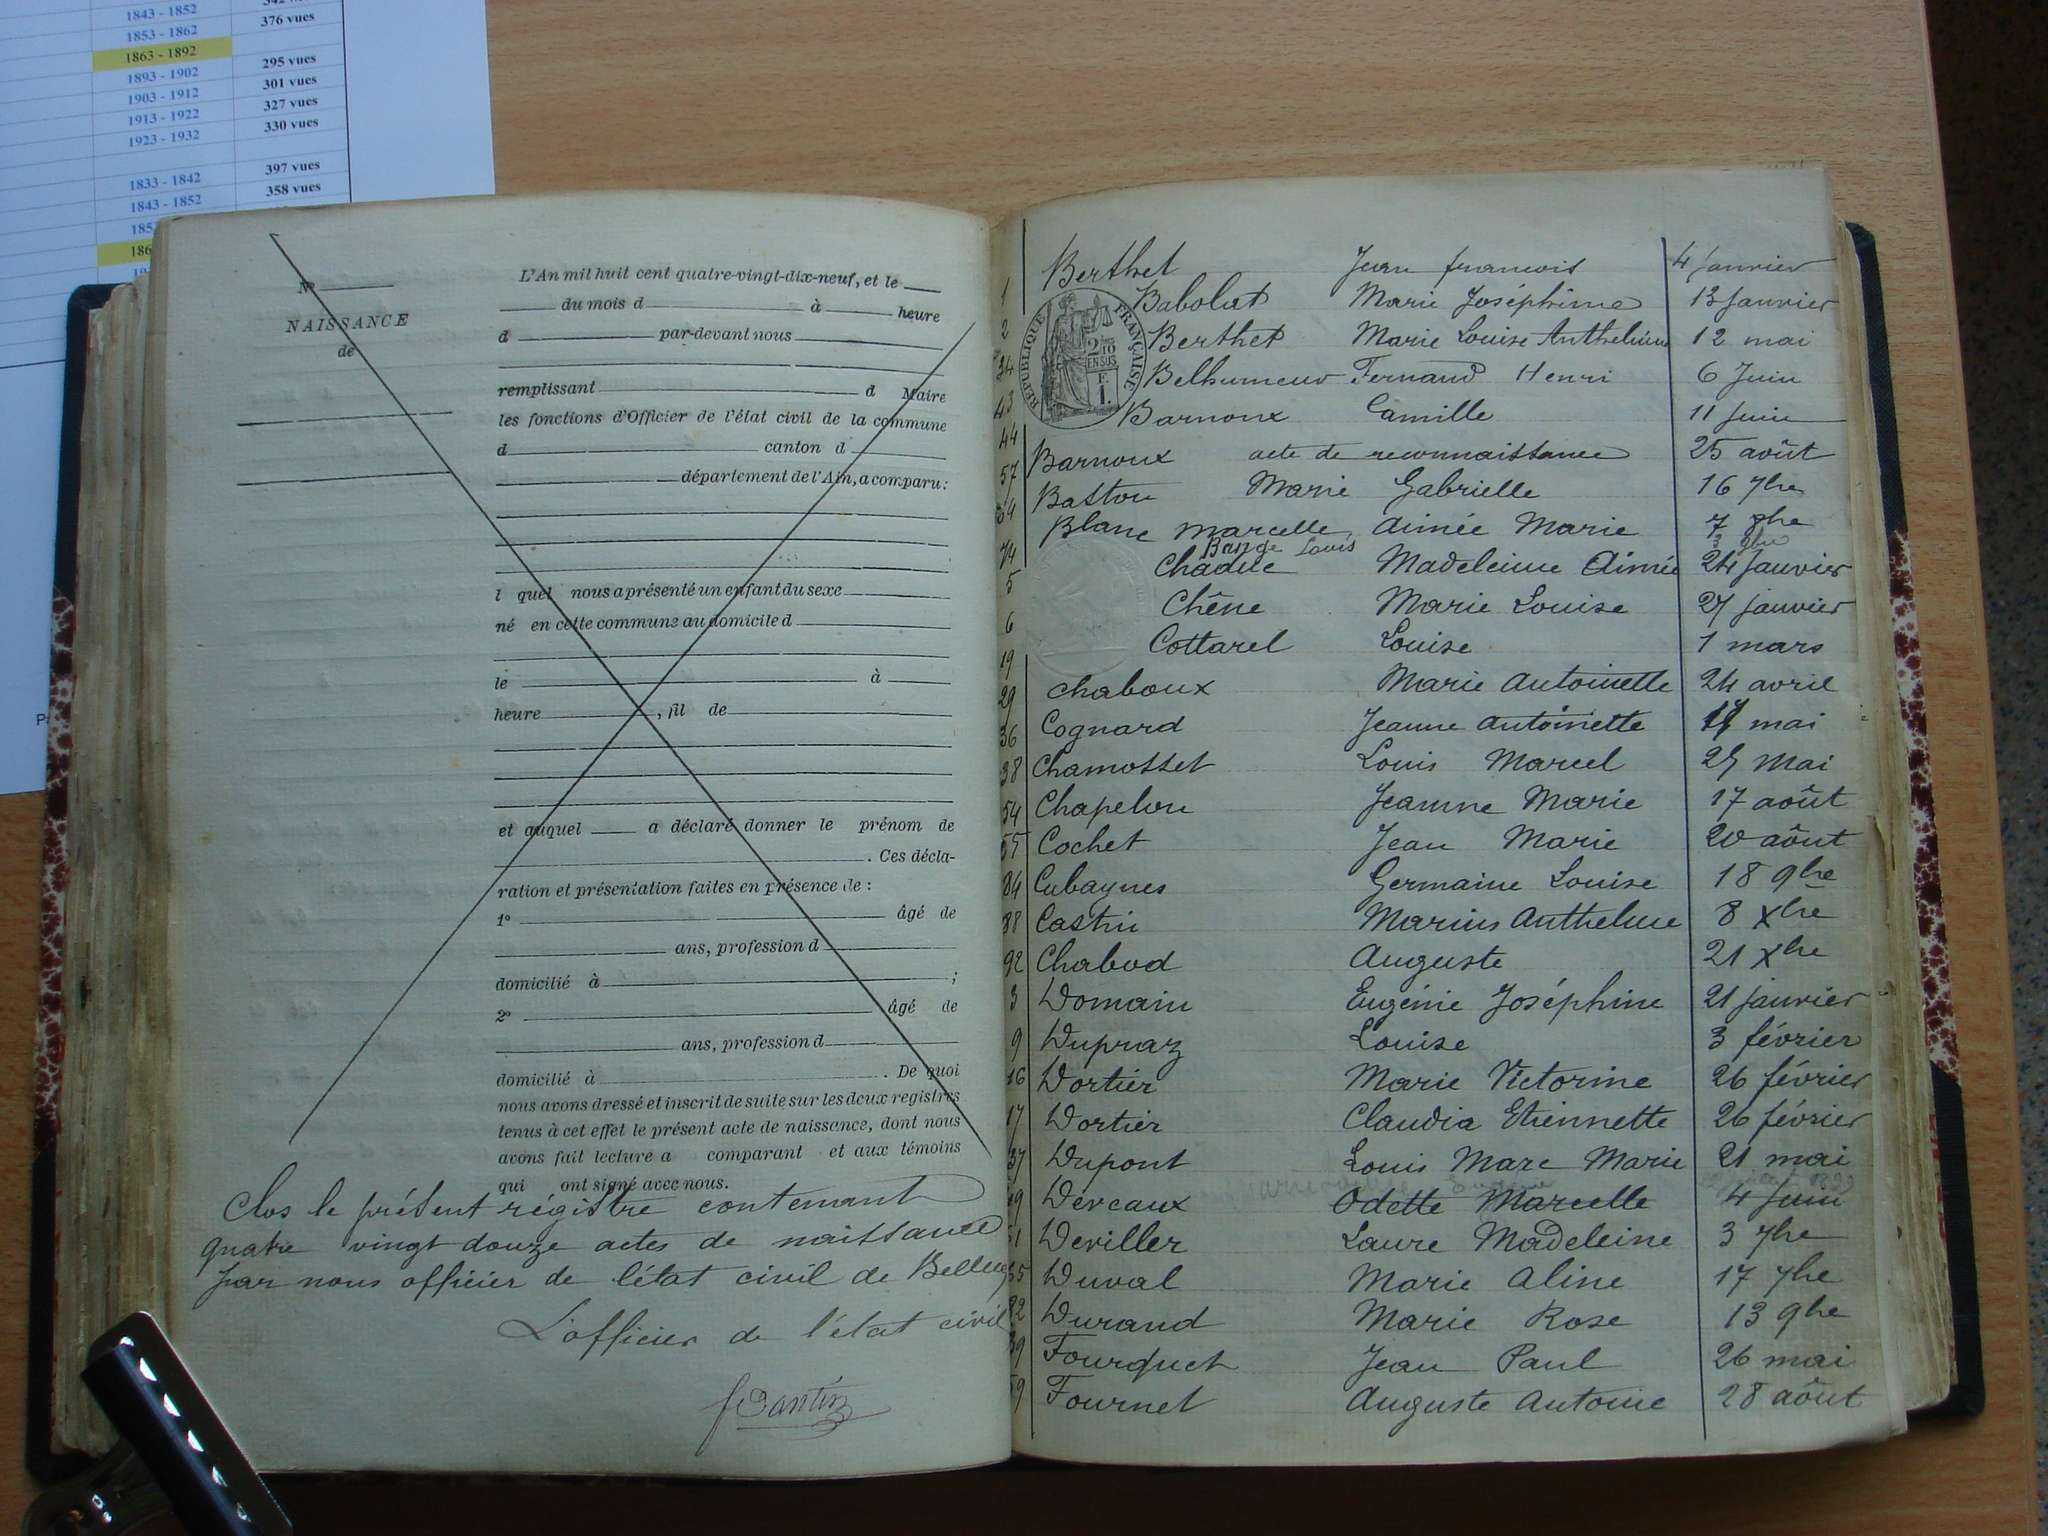 1843 - 1852
376 vues
1853 - 1862
1863 - 1892
1893 - 1902 295 vues
1903 - 1912 301 vues
1913 - 1922 327 vues
1923 - 1932 330 vues
1833 - 1842 397 vues
1843 - 1852 358 vues
N°
NAISSANCE
de
L'An mil huit cent quatre-vingt-dix-neuf, et le
du mois d à heure
d par-devant nous
remplissant d Maire
les fonctions d'Officier de l'état civil de la commune
d canton d
département de l'Ain, a comparu:
l quel nous a présenté un enfant du sexe
né en cette commune au domicile d
le à
heure , fil de
et auquel a déclaré donner le prénom de
. Ces décla-
ration et présentation faites en présence de :
1° âgé de
ans, profession d
domicilié à ;
2° âgé de
ans, profession d
domicilié à . De quoi
nous avons dressé et inscrit de suite sur les deux registres
tenus à cet effet le présent acte de naissance, dont nous
avons fait lecture a comparant et aux témoins
qui ont signé avec nous.
Clos le présent régistre contenant
quatre vingt douze actes de naissance
par nous officier de l'état civil de Belley
L'officier de l'état civil
RÉPUBLIQUE FRANÇAISE
2/10 EN SUS
F. 1.
1 Berthet Jean francois 4 janvier
2 Babolat Marie Joséphine 13 Janvier
34 Berthet Marie Louise Anthelmine 12 mai
43 Belhumeur Fernand Henri 6 Juin
44 Barnoux Camille 11 Juin
57 Barnoux acte de reconnaissance 25 août
64 Baston Marie Gabrielle 16 7bre
74 Blanc Marcelle Aimée Marie 7 8bre
Barge Louis 3 9bre
5 Chaduc Madeleine Aimée 24 Janvier
6 Chêne Marie Louise 27 janvier
19 Cottarel Louise 1 mars
29 Chaboux Marie Antoinette 24 avril
36 Cognard Jeanne Antoinette 17 mai
38 Chamosset Louis Marcel 25 Mai
54 Chapelou Jeanne Marie 17 août
55 Cochet Jean Marie 20 aôut
84 Cubaynes Germaine Louise 18 9bre
88 Castin Marius Anthelme 8 Xbre
92 Chabod Auguste 21 Xbre
3 Domain Eugénie Joséphine 21 janvier
9 Dupraz Louise 3 février
16 Dortier Marie Victorine 26 février
17 Dortier Claudia Etiennette 26 février
37 Dupont Louis Marc Marie 21 mai
Dévcaux Odette Marcelle 4 Juin
Deviller Laure Madeleine 3 7bre
Duval Marie Aline 17 7bre
82 Durand Marie Rose 13 9bre
Fourquet Jean Paul 26 mai
Fournet Auguste Antoine 28 aôut